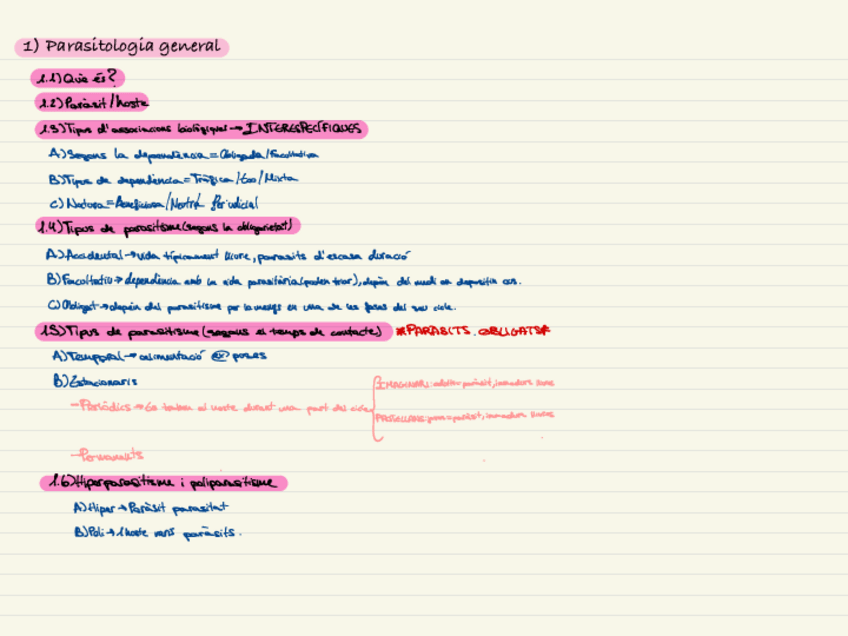 1) Parasitología general
1.1) Què és?
1.2) Paràsit/hoste
1.3) Tipus d'associacions biològiques → INTERESPECÍFIQUES
A) Segons la dependència = Obligada/Facultativa
B) Tipus de dependència = Tròfica/Eco/Mixta
C) Natura = Beneficiosa/Neutra/Perjudicial
1.4) Tipus de parasitisme (segons la obligarietat)
A) Accidental → vida típicament lliure, parasits d'escasa duració
B) Facultatiu → dependència amb la vida parasitària (poden triar), depèn del medi on depositin ous.
C) Obligat → depèn del parasitisme per lo menys en una de les fases del seu cicle.
1.5) Tipus de parasitisme (segons el temps de contacte) *PARÀSITS OBLIGATS*
A) Temporal → alimentació @ poses
B) Estacionaris
- Periòdics → Es troben al hoste durant una part del cicle
IMAGINARI: adult = paràsit, immadurs lliure
immadurs lliures
- Permanents
1.6) Hiperparasitisme i poliparasitisme
A) Hiper → Paràsit parasitat
B) Poli → 1 hoste varis paràsits.